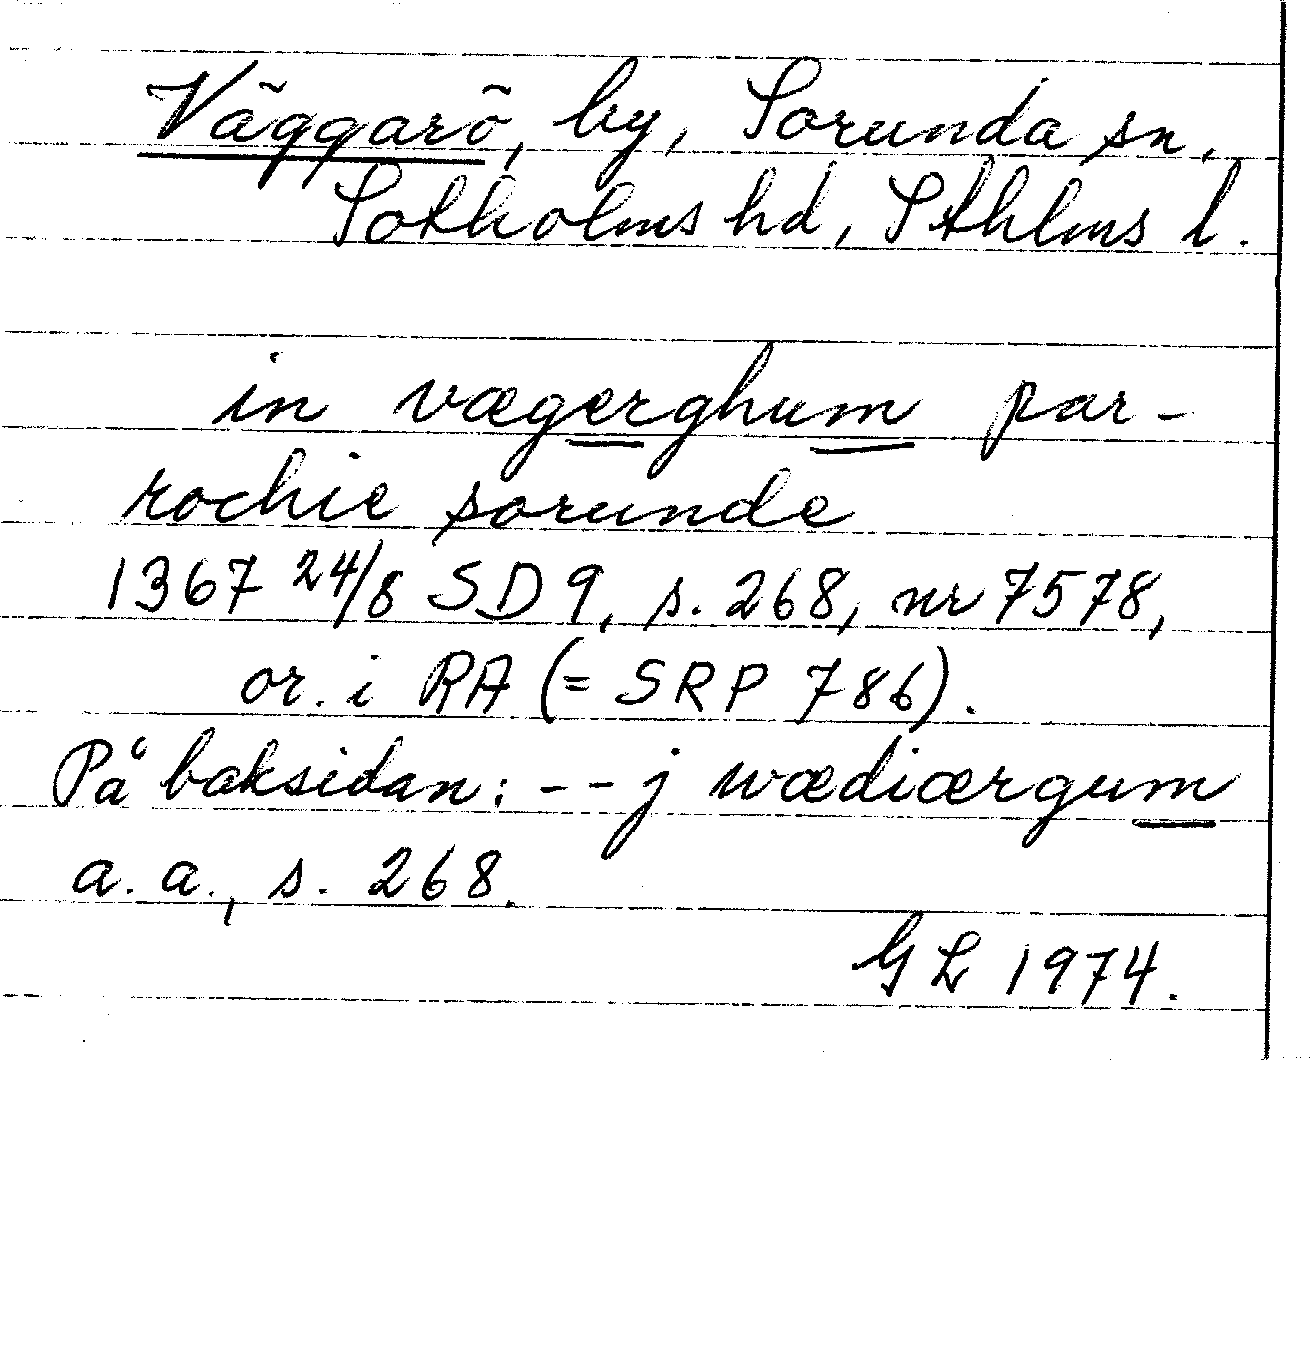 Väggarö, by, Sorunda sn,
Sotholms hd, Sthlms l.
in vægerghum par-
rochie sorunde
1367 24/8 SD 9, s. 268, nr 7578,
or. i RA (= SRP 786).
På baksidan: -- j wædiærgum
a. a., s. 268.
GL 1974.